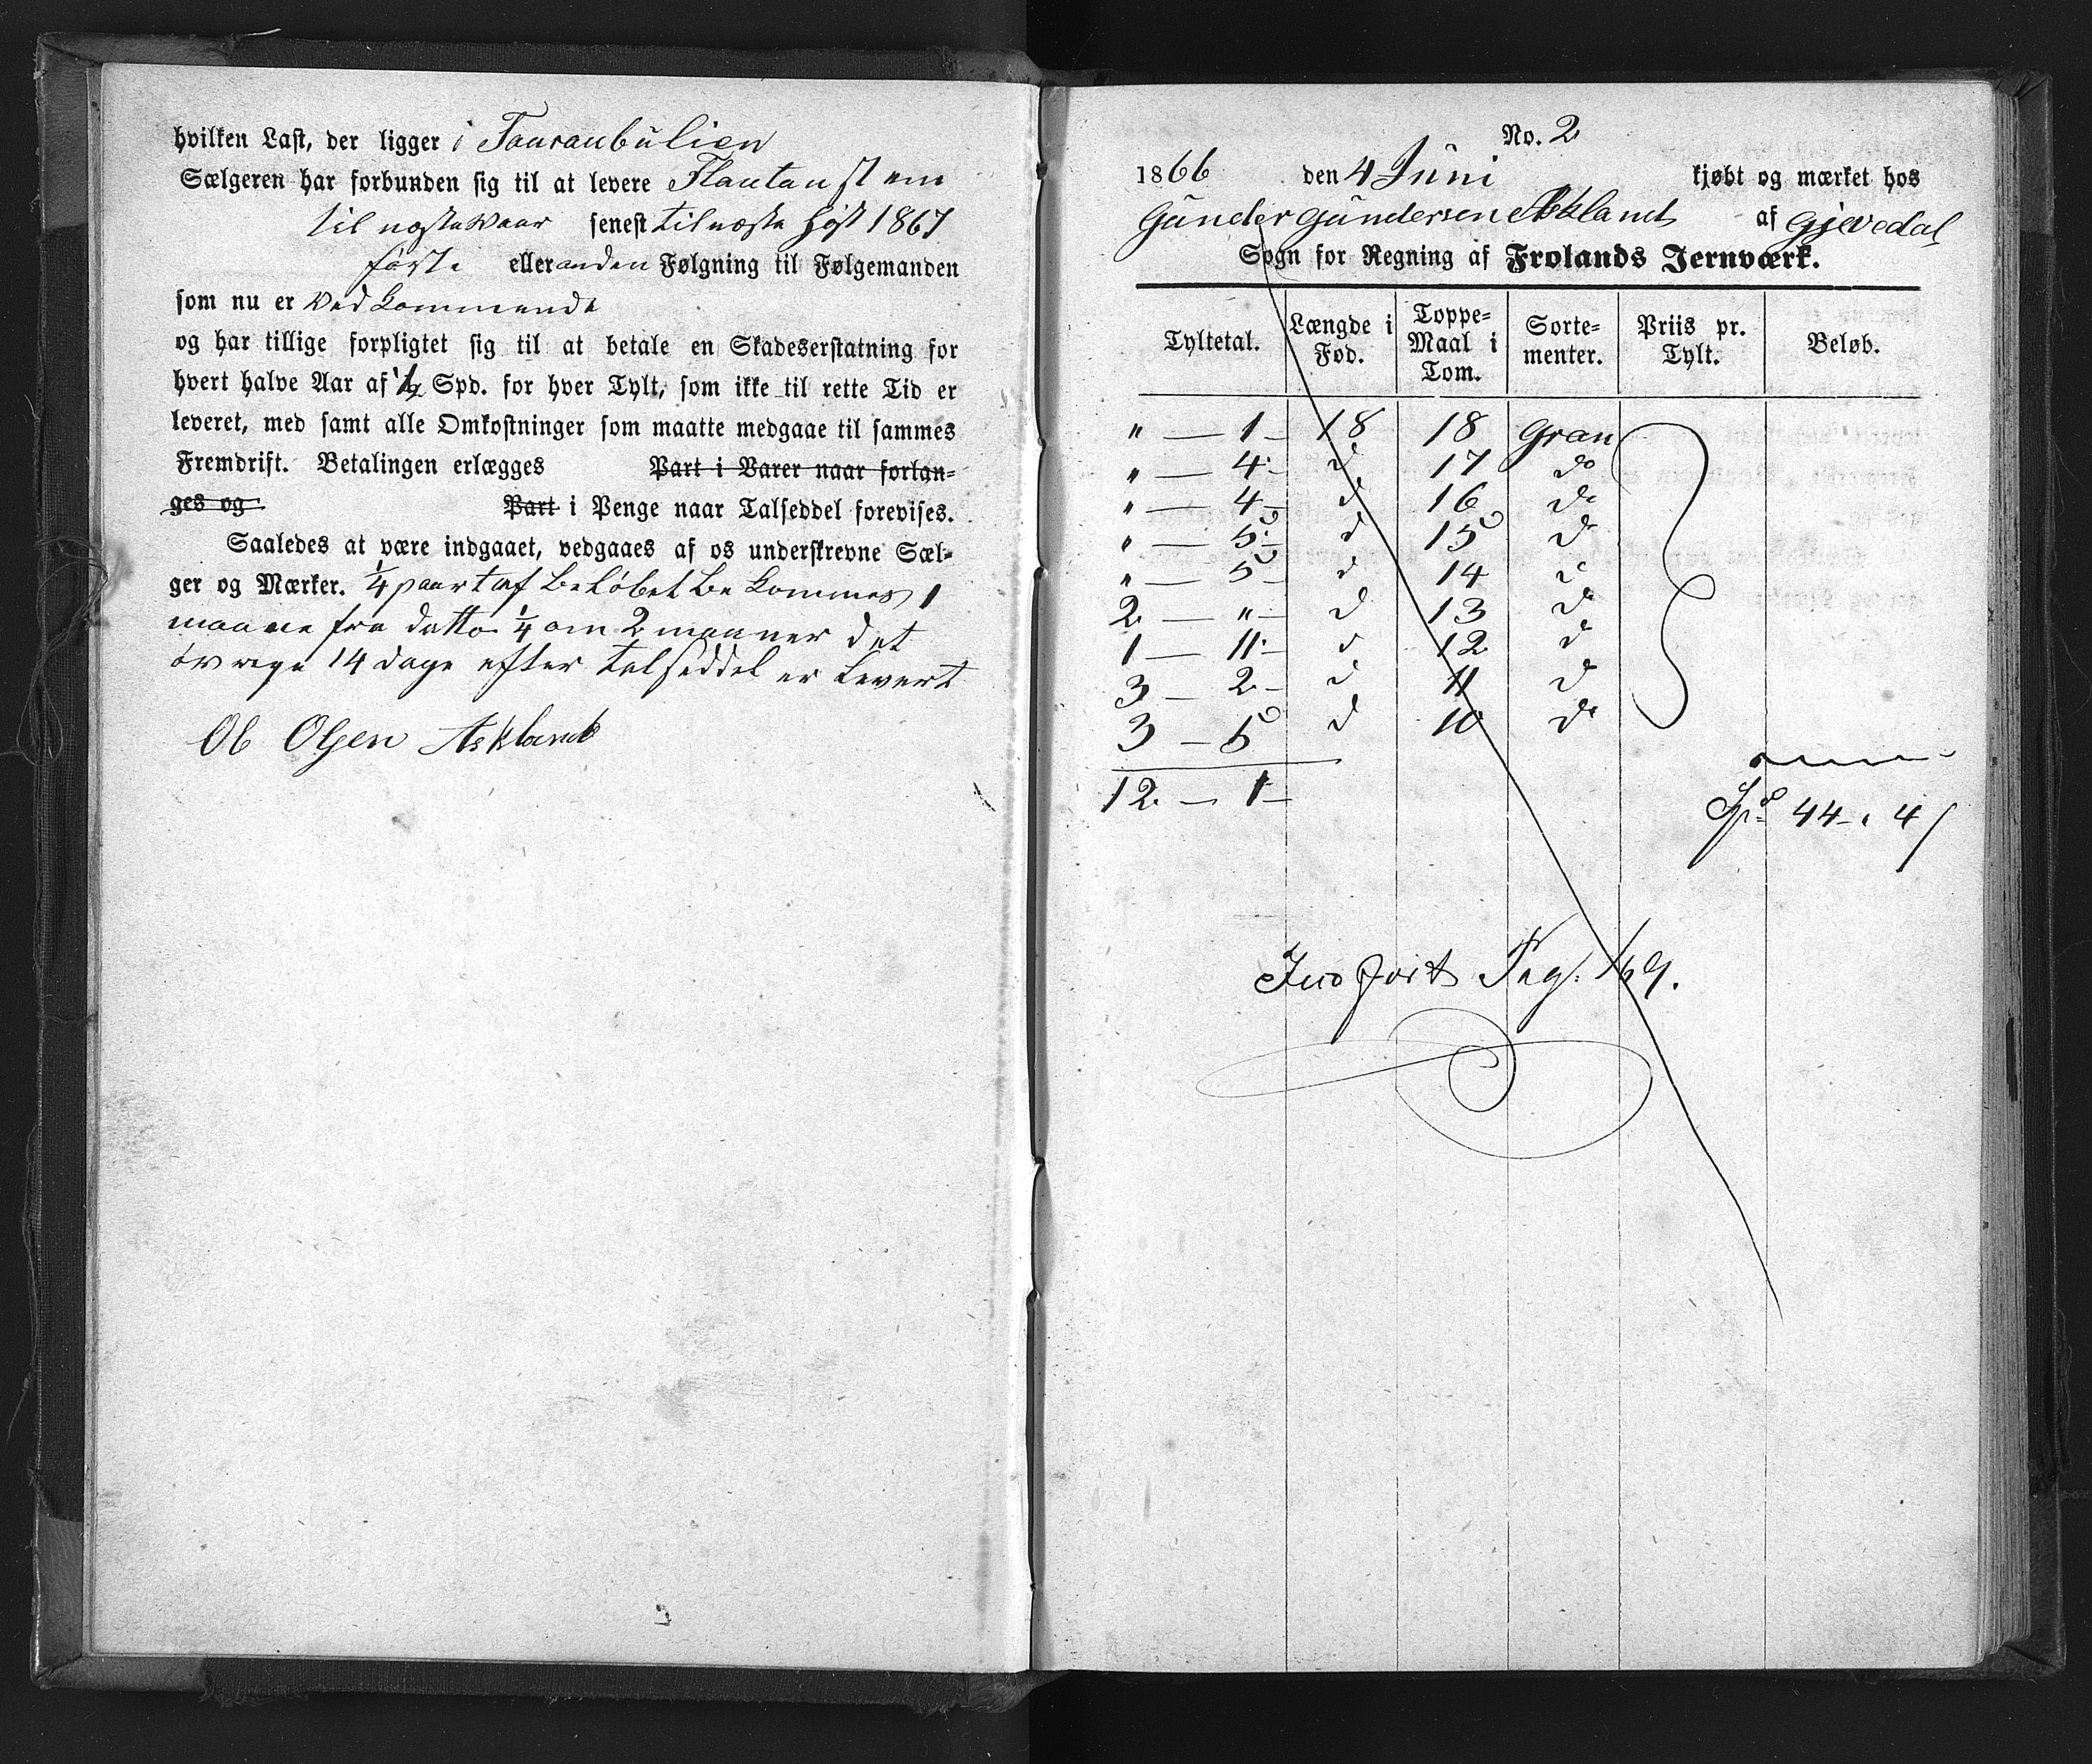 hvilken Last, der ligger i Tauraubulien
Sælgeren har forbunden sig til at levere Flautau st em
til næste Waar senest til næste Høst 1867
første eller anden Følgning til Følgemanden
som nu er Vedkommende
og har tillige forpligtet sig til at betale en Skadeserstatning for
hvert halve Aar af 1/2 Spd. for hver Tylt, som ikke til rette Tid er
leveret, med samt alle Omkostninger som maatte medgaae til sammes
Fremdrift. Betalingen erlægges Part i Varer naar forlan-
ges og Part i Penge naar Talseddel forevises.
Saaledes at være indgaaet, vedgaaes af os underskrevne Sæl-
ger og Mærker. 1/4 paart af Beløbet Bekommes 1
maane fra datto 1/4 om 2 maaner det
øvrige 14 dage efter talseddel er Levert
Ol Olsen Askland
No. 2
1866 den 4 Juni kjøbt og mærket hos
Gunder Gundersen Askland af Gjevedal
Sogn for Regning af Frolands Jernværk.
Tyltetal. Længde i Fod. Toppe-Maal i Tom. Sorte-menter. Priis pr. Tylt. Beløb.
" — 1 — 18 18 Gran
" — 4 — d 17 do
" — 4 — d 16 do
" — 5 — d 15 d
" — 5 — d 14 d
2 — " — d 13 d
1 — 11 — d 12 d
3 — 2 — d 11 d
3 — 5 d 10 do
12 — 1 —
Spd 44 - " 4/
Indført Pag. 169.